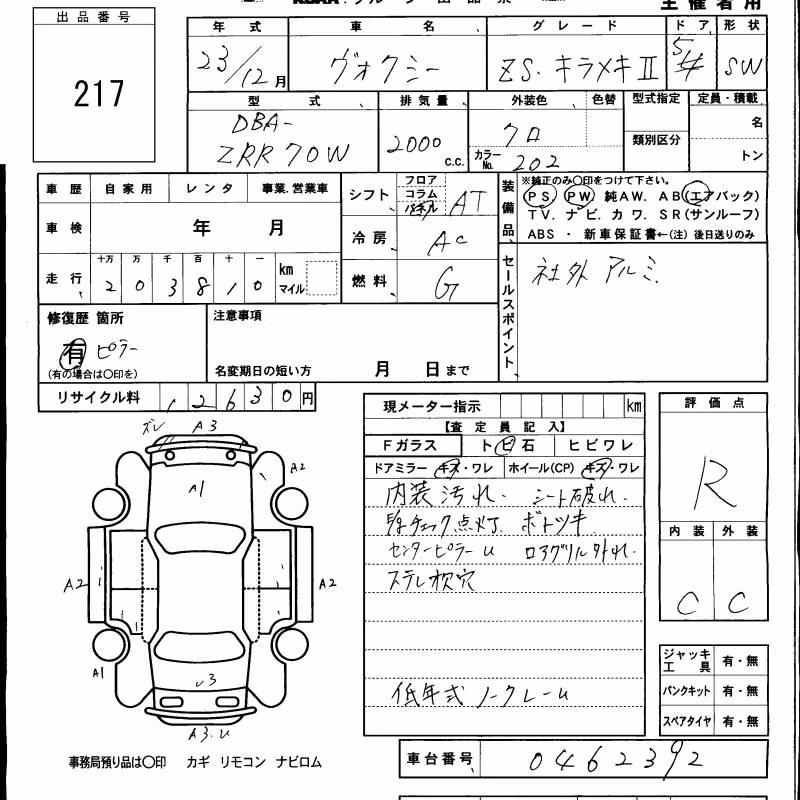 主催者用
出品番号
217
年式 車名 グレード ドア 形状
23/12月 ヴォクシー ZS.キラメキⅡ 5/4 SW
型式 排気量 外装色 色替 型式指定 定員・積載
DBA-
ZRR70W 2000 c.c. クロ 類別区分 名
カラーNo. 202 トン
車歴 自家用 レンタ 事業.営業車
車検 年 月
走行 十万 万 千 百 十 一 km マイル
2 0 3 8 1 0
シフト フロア コラム パネル AT
冷房 AC
燃料 G
装備品
※純正のみ○印をつけて下さい。
PS PW 純AW. AB(エアバック)
TV. ナビ. カワ. SR(サンルーフ)
ABS ・ 新車保証書←(注) 後日送りのみ
セールスポイント
社外 アルミ
修復歴 箇所
有 ピラー
(有の場合は○印を)
注意事項
名変期日の短い方 月 日まで
リサイクル料 12630円
現メーター指示 km
【査定員記入】
Fガラス ト ビ 石 ヒビワレ
ドアミラー キズ・ワレ ホイール(CP) キズ・ワレ
内装汚れ. シート破れ.
チェック点灯 ボトツキ
センターピラーU ロアグリル外れ.
ステレオ穴
低年式 ノークレーム
評価点
R
内装 外装
C C
ジャッキ 工具 有・無
パンクキット 有・無
スペアタイヤ 有・無
ズレ A3
A1
A2
A2 A2
A1
U3
A3.U
事務局預り品は○印 カギ リモコン ナビロム
車台番号 0462392